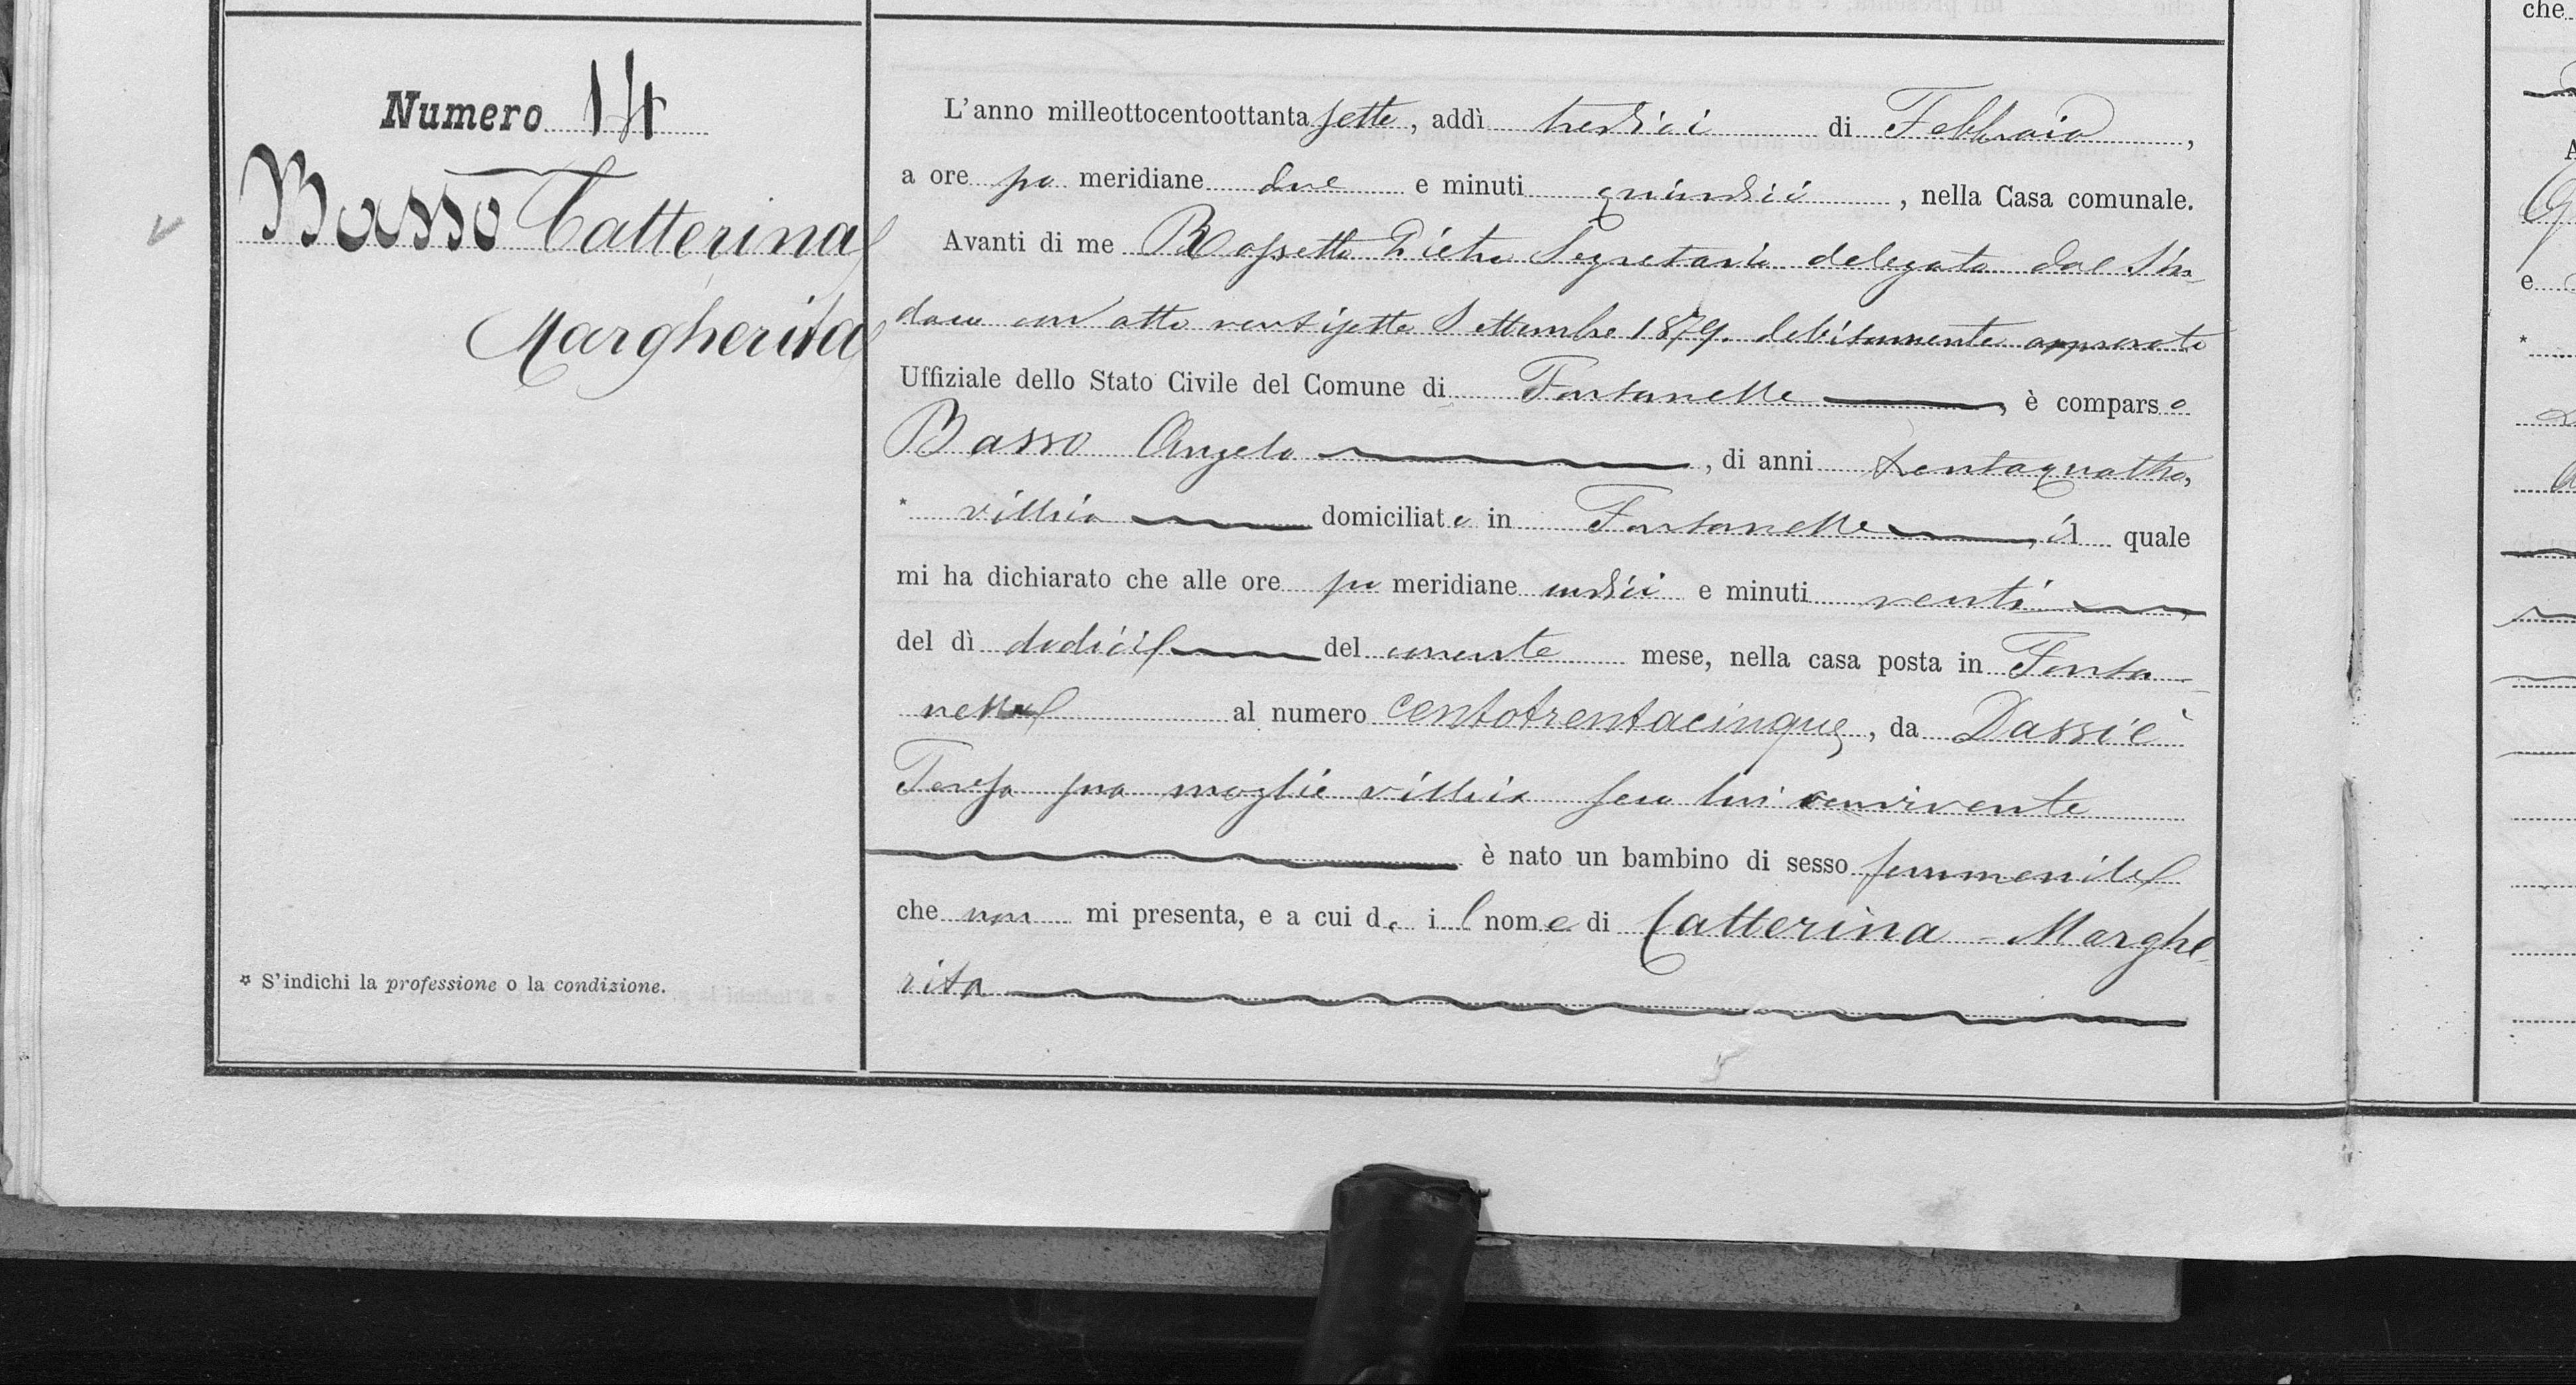 Numero 14
Basso Catterina
Margherita
* S'indichi la professione o la condizione.
L'anno milleottocentoottanta sette, addì tredici di Febbraio,
a ore po meridiane due e minuti quindici, nella Casa comunale.
Avanti di me Rossetto Pietro Segretario delegato dal Sin-
daco con atto ventisette Settembre 1879. debitamente approvato
Uffiziale dello Stato Civile del Comune di Fontanelle, è comparso
Basso Angelo, di anni trentaquattro,
* villico domiciliato in Fontanelle, il quale
mi ha dichiarato che alle ore po meridiane undici e minuti venti,
del dì dodici del corrente mese, nella casa posta in Fonta-
nelle al numero centotrentacinque, da Dassiè
Teresa sua moglie villica seco lui convivente
è nato un bambino di sesso femmenile
che non mi presenta, e a cui dà il nome di Catterina - Marghe-
rita
che
e
*